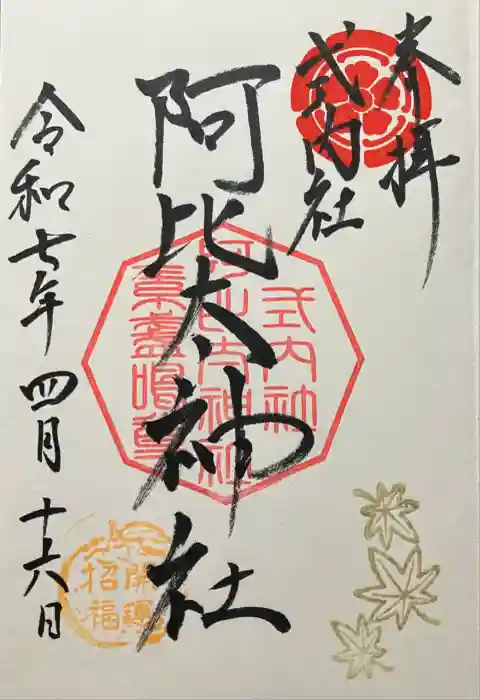 奉拝
式内社
阿比太神社
式内社
阿比太神社
素盞嗚尊
令和七年 四月 十六日
開運
招福